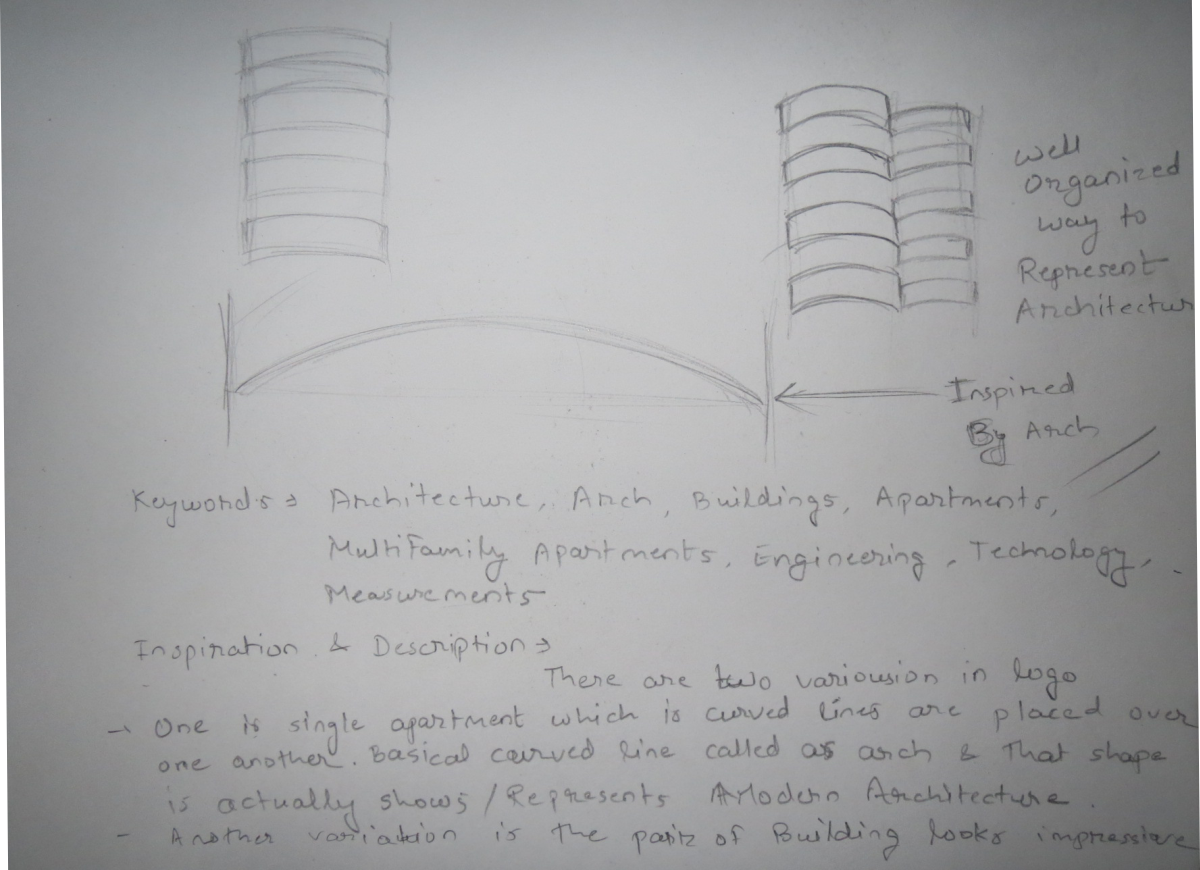 Well
Organized
way to
Represent
Architectur
Inspired
By Arch
Keywords → Architecture, Arch, Buildings, Apartments,
MultiFamily Apartments, Engineering, Technology,
Measurements
Inspiration & Description →
There are two variousion in logo
→ One is single apartment which is curved lines are placed over
one another. Basical curved line called as arch & That shape
is actually shows / Represents Modern Architecture.
- Another variation is the pair of Building looks impressive